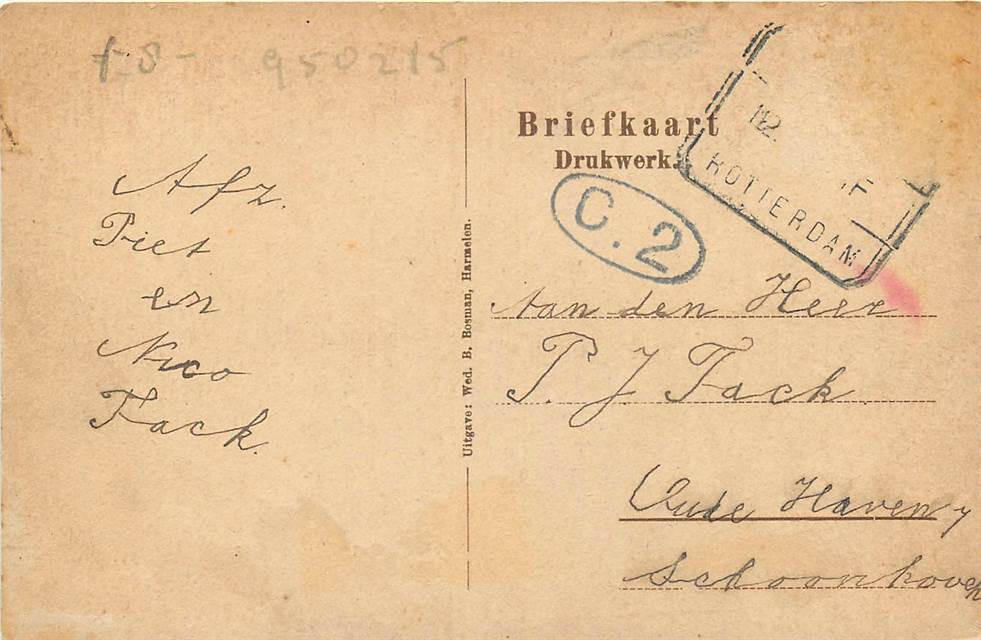 f. 8 - 950215
Afz.
Piet
en
Nico
Fack.
Uitgave: Wed. B. Bosman, Harmelen.
Briefkaart
Drukwerk.
112
ROTTERDAM
C. 2
Aan den Heer
P. J Fack
Oude Haven 7
Schoonhoven